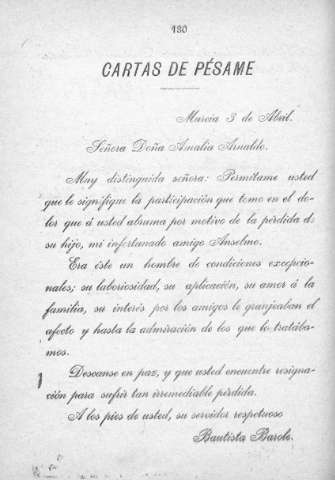 130
CARTAS DE PÉSAME
Murcia 3 de Abril.
Señora Doña Amalia Arnaldo.
Muy distinguida señora: Permítame usted
que le signifique la participación que tomo en el do-
lor que á usted abruma por motivo de la pérdida de
su hijo, mi infortunado amigo Anselmo.
Era éste un hombre de condiciones excepcio-
nales; su laboriosidad, su aplicación, su amor á la
familia, su interés por los amigos le granjeaban el
afecto y hasta la admiración de los que lo tratába-
mos.
Descanse en paz, y que usted encuentre resigna-
ción para sufrir tan irremediable pérdida.
A los pies de usted, su servidor respetuoso
Bautista Barolo.